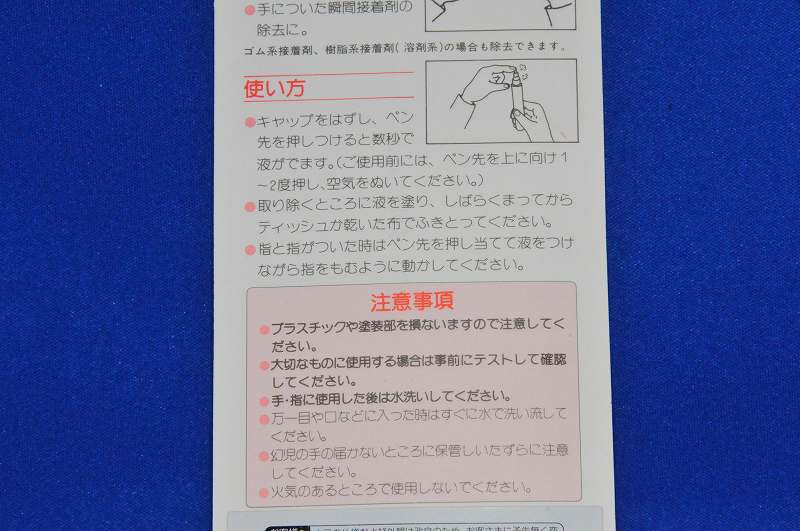 ●手についた瞬間接着剤の
除去に。
ゴム系接着剤、樹脂系接着剤(溶剤系)の場合も除去できます。
使い方
●キャップをはずし、ペン
先を押しつけると数秒で
液がでます。(ご使用前には、ペン先を上に向け1
～2度押し、空気をぬいてください。)
●取り除くところに液を塗り、しばらくまってから
ティッシュか乾いた布でふきとってください。
●指と指がついた時はペン先を押し当てて液をつけ
ながら指をもむように動かしてください。
注意事項
●プラスチックや塗装部を損ないますので注意してく
ださい。
●大切なものに使用する場合は事前にテストして確認
してください。
●手・指に使用した後は水洗いしてください。
●万一目や口などに入った時はすぐに水で洗い流して
ください。
●幼児の手の届かないところに保管しいたずらに注意
してください。
●火気のあるところで使用しないでください。